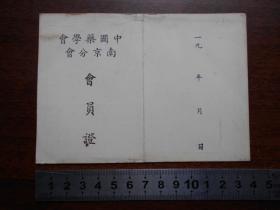 中國藥學會
南京分會
會員證
一九 年 月 日
1 2 3 4 5 6 7 8 9 10